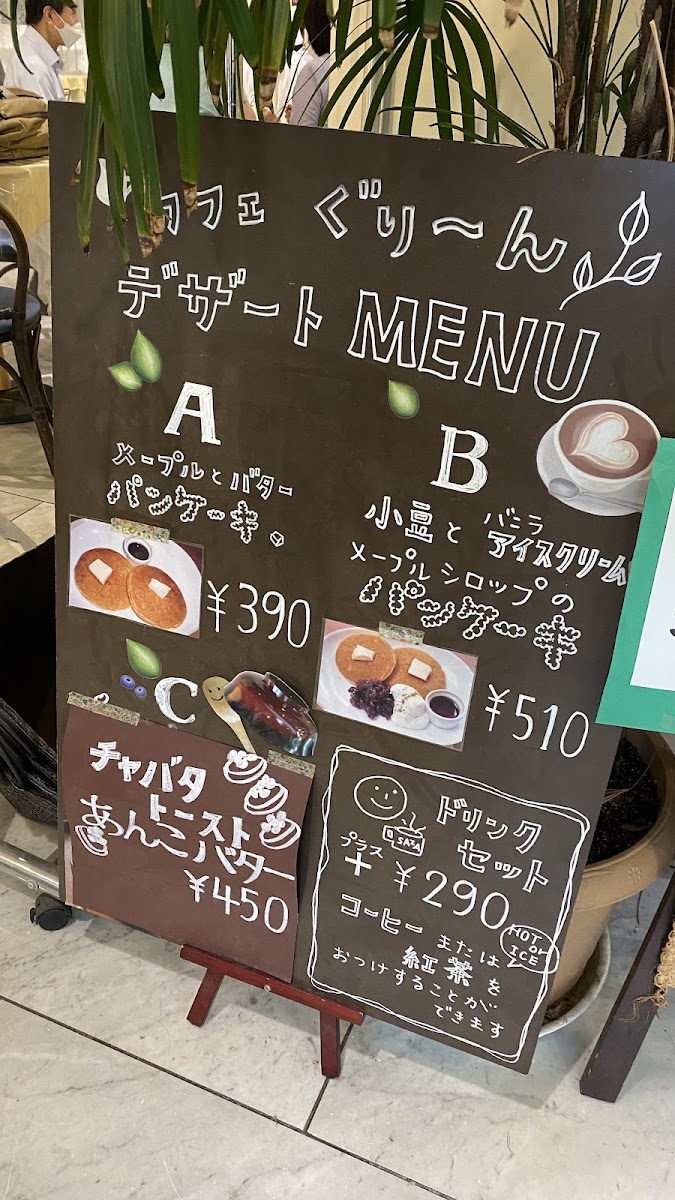 カフェ ぐりーん
デザート MENU
A
メープルとバター
パンケーキ
¥390
B
小豆と バニラ
アイスクリーム
メープルシロップの
パンケーキ
¥510
C
チャバタ
トースト
あんこバター
¥450
ドリンク
セット
プラス
+ ¥290
コーヒー または
紅茶を
HOT or ICE
おつけすることが
できます